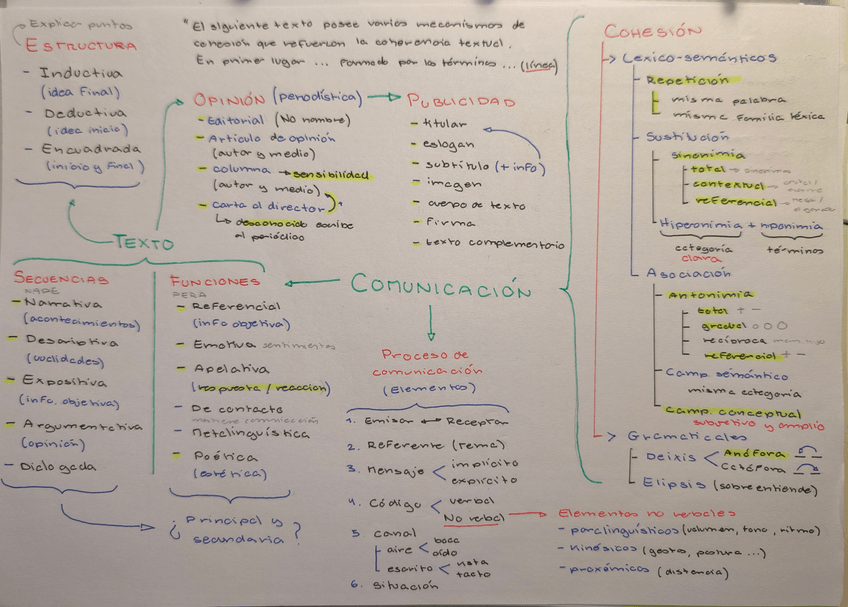 Explicar puntos
ESTRUCTURA
- Inductiva
(idea Final)
- Deductiva
(idea inicio)
- Encuadrada
(inicio y Final)
"El siguiente texto posee varios mecanismos de
cohesión que refuerzan la coherencia textual.
En primer lugar ... formado por los términos ... (línea)
OPINIÓN (periodística)
- Editorial (No nombre)
- Artículo de opinión
(autor y medio)
- columna → sensibilidad
(autor y medio)
- carta al director
↳ desconocido escribe
al periódico
PUBLICIDAD
- titular
- eslogan
- subtítulo (+ info)
- imagen
- cuerpo de texto
- Firma
- texto complementario
TEXTO
SECUENCIAS
NADE
- Narrativa
(acontecimientos)
- Descriptiva
(cualidades)
- Expositiva
(info. objetiva)
- Argumentativa
(opinión)
- Dialogada
FUNCIONES
PERA
- Referencial
(info objetiva)
- Emotiva sentimientos
- Apelativa
(respuesta / reacción)
- De contacto
mantiene comunicación
- Metalingüística
- Poética
(estética)
¿Principal y
secundaria?
COMUNICACIÓN
Proceso de
comunicación
(Elementos)
1. Emisor ↔ Receptor
2. Referente (tema)
3. Mensaje < implícito
explícito
4. Código < verbal
No verbal
5 canal
aire < boca
oído
escrito < vista
tacto
6. Situación
Elementos no verbales
- parclingüísticos (volumen, tono, ritmo)
- kinésicos (gestos, postura ...)
- proxémicos (distancia)
COHESIÓN
→ Léxico-semánticos
Repetición
misma palabra
misma familia léxica
Sustitución
sinonimia
total → sinónimo
contextual →
referencial →
Hiperonimia + hiponimia
categoría términos
clara
Asociación
Antonimia
total + -
gradual o O O
recíproca
referencial + -
Camp. semántico
misma categoría
Camp. conceptual
subjetivo y amplio
→ Gramaticales
- Deixis < Anáfora
Catáfora
- Elipsis (sobreentiende)